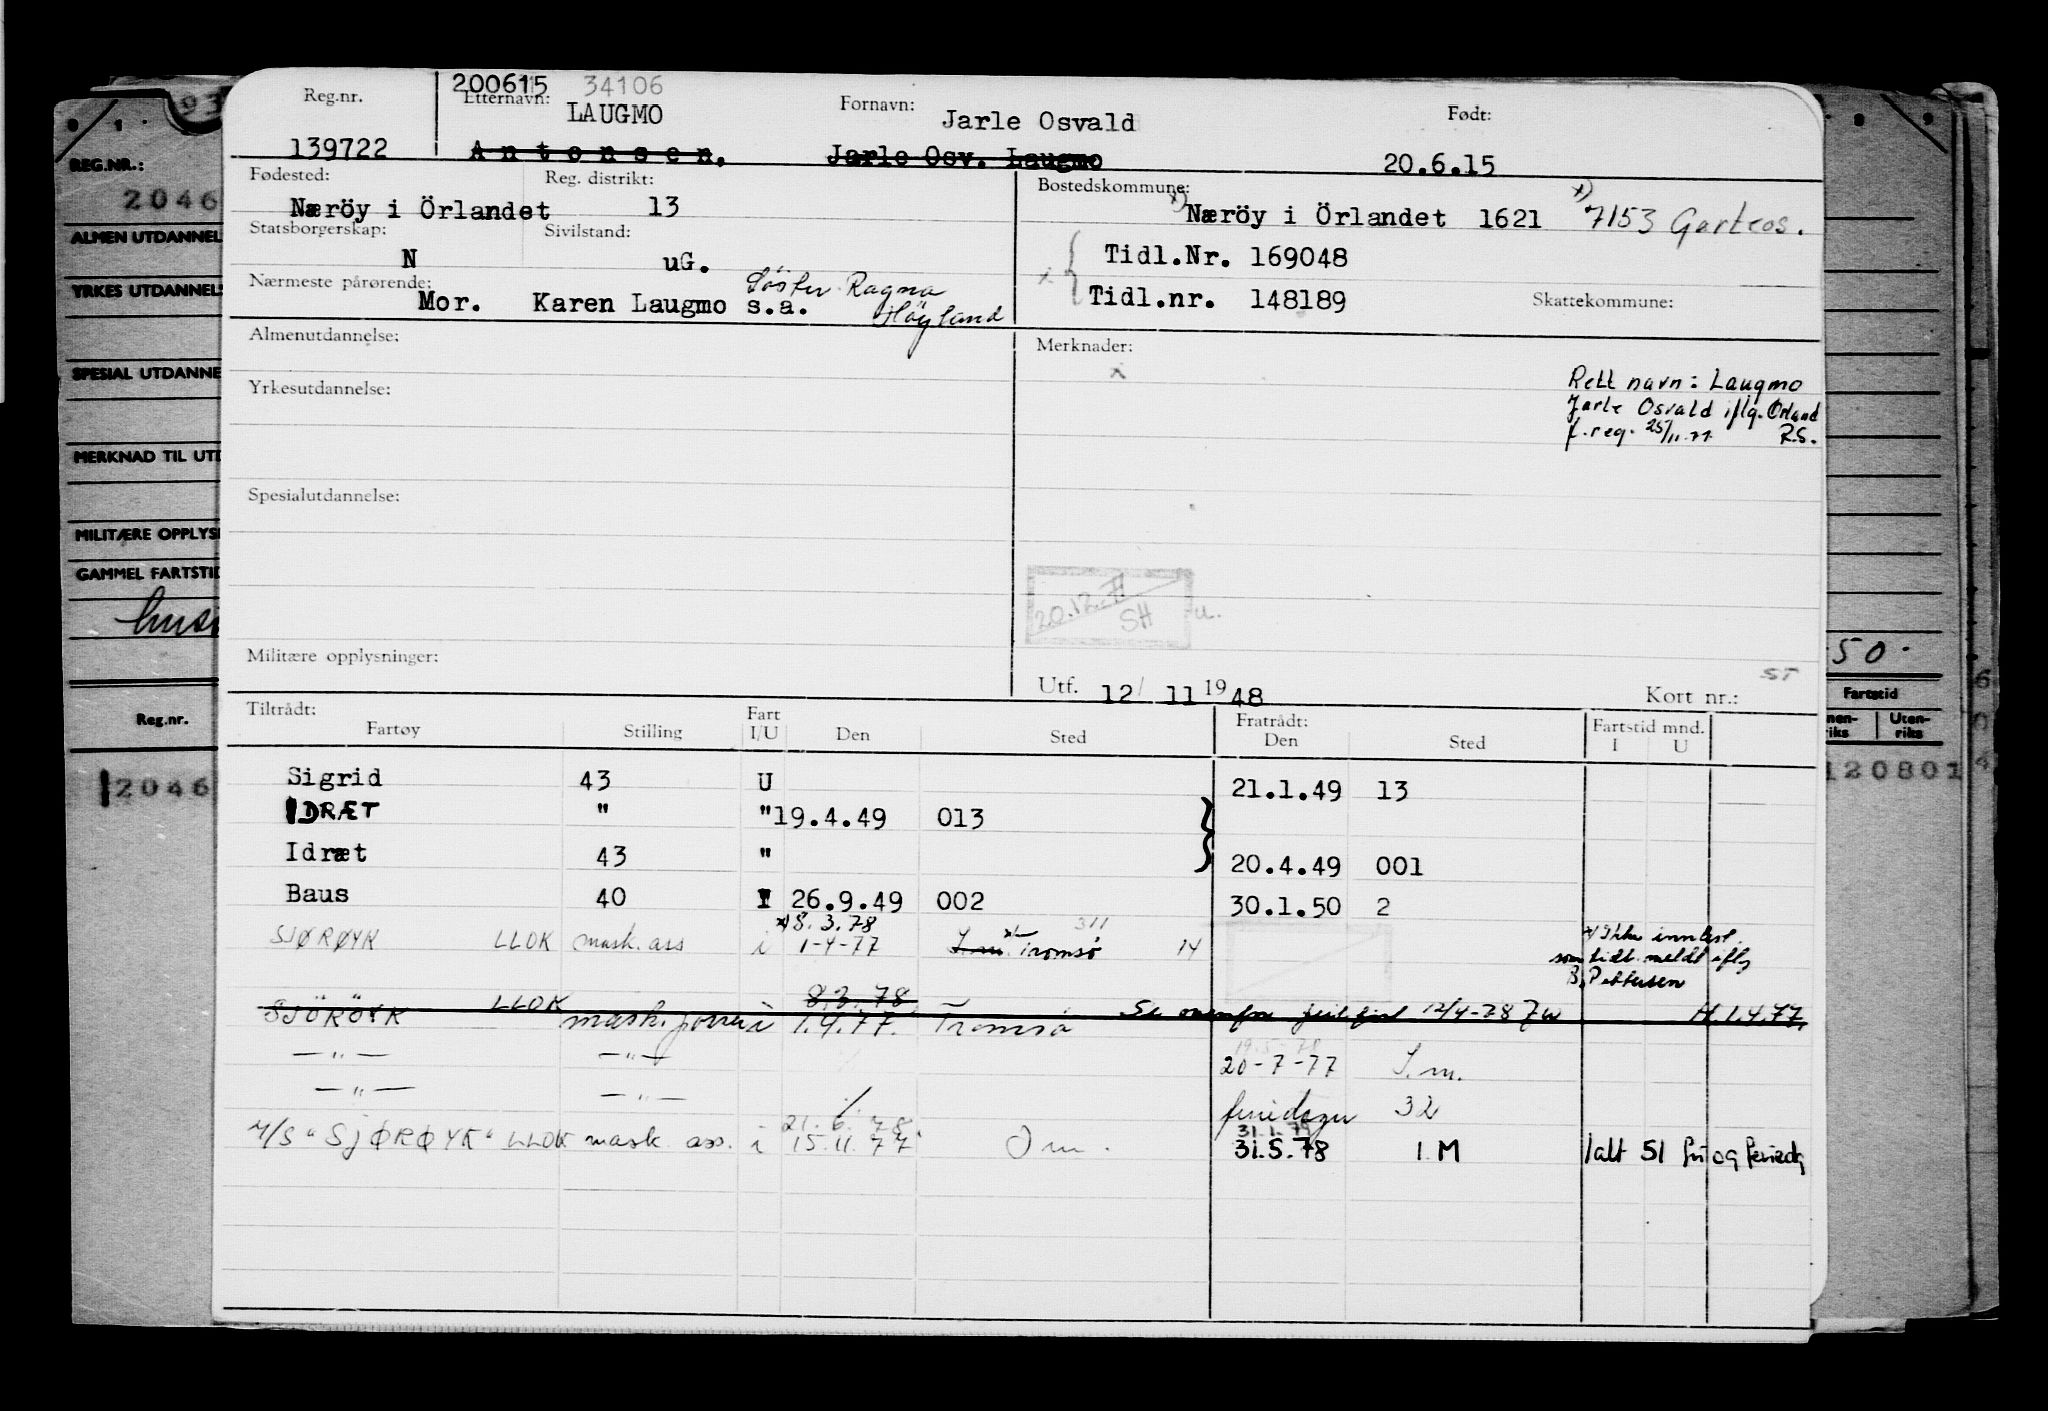 200615 34106
Reg.nr. Etternavn: Fornavn: Født:
LAUGMO Jarle Osvald
139722 Antonsen, Jarle Osv. Laugmo 20.6.15
Fødested: Reg. distrikt: Bostedskommune:
Næröy i Örlandet 13 x) Næröy i Örlandet 1621 x) 7153 Garten.
Statsborgerskap: Sivilstand:
N uG. Tidl.Nr. 169048
Nærmeste pårørende: Søster Ragna
Mor. Karen Laugmo s.a. Høyland x Tidl.nr. 148189 Skattekommune:
Almenutdannelse: Merknader:
x
Yrkesutdannelse:
Rett navn: Laugmo
Jarle Osvald iflg. Ørland
f.reg. 25/11.77 R.S.
Spesialutdannelse:
20.12.77
SH u.
Militære opplysninger:
ST
Utf. 12/ 11 1948 Kort nr.:
Tiltrådt: Fratrådt:
Fartøy Stilling Fart I/U Den Sted Den Sted Fartstid mnd. I U
Sigrid 43 U 21.1.49 13
IDRÆT " " 19.4.49 013
Idræt 43 " 20.4.49 001
Baus 40 I 26.9.49 002 30.1.50 2
x) 8.3.78 311
SJØRØYK LLOK mask. ass i 1-4-77 I.m. Tromsø 14
x) Ikke innløst
som tidl. meldt iflg
B. Pettersen
8.3.78
SJÖRÖYK LLOK mask. i 1.4.77. Tromsø Se ovenfor 12/4-78 H.1.4.77.
19.5-78
— " — — " — 20-7-77 I.m.
— " — — " — feriedager 32
21.6.78 31.1.79
M/S "SJØRØYK" LLOK mask. ass. i 15.11.77 I m. 31.5.78 I.M Ialt 51 fri og feriedg
REG.NR.:
2046
ALMEN UTDANNEL
YRKES UTDANNELS
SPESIAL UTDANNE
MERKNAD TIL UTD
MILITÆRE OPPLYS
GAMMEL FARTSTID
50.
Reg.nr.
2046
Fartstid
nen-riks Uten-riks
120801
6
0
4